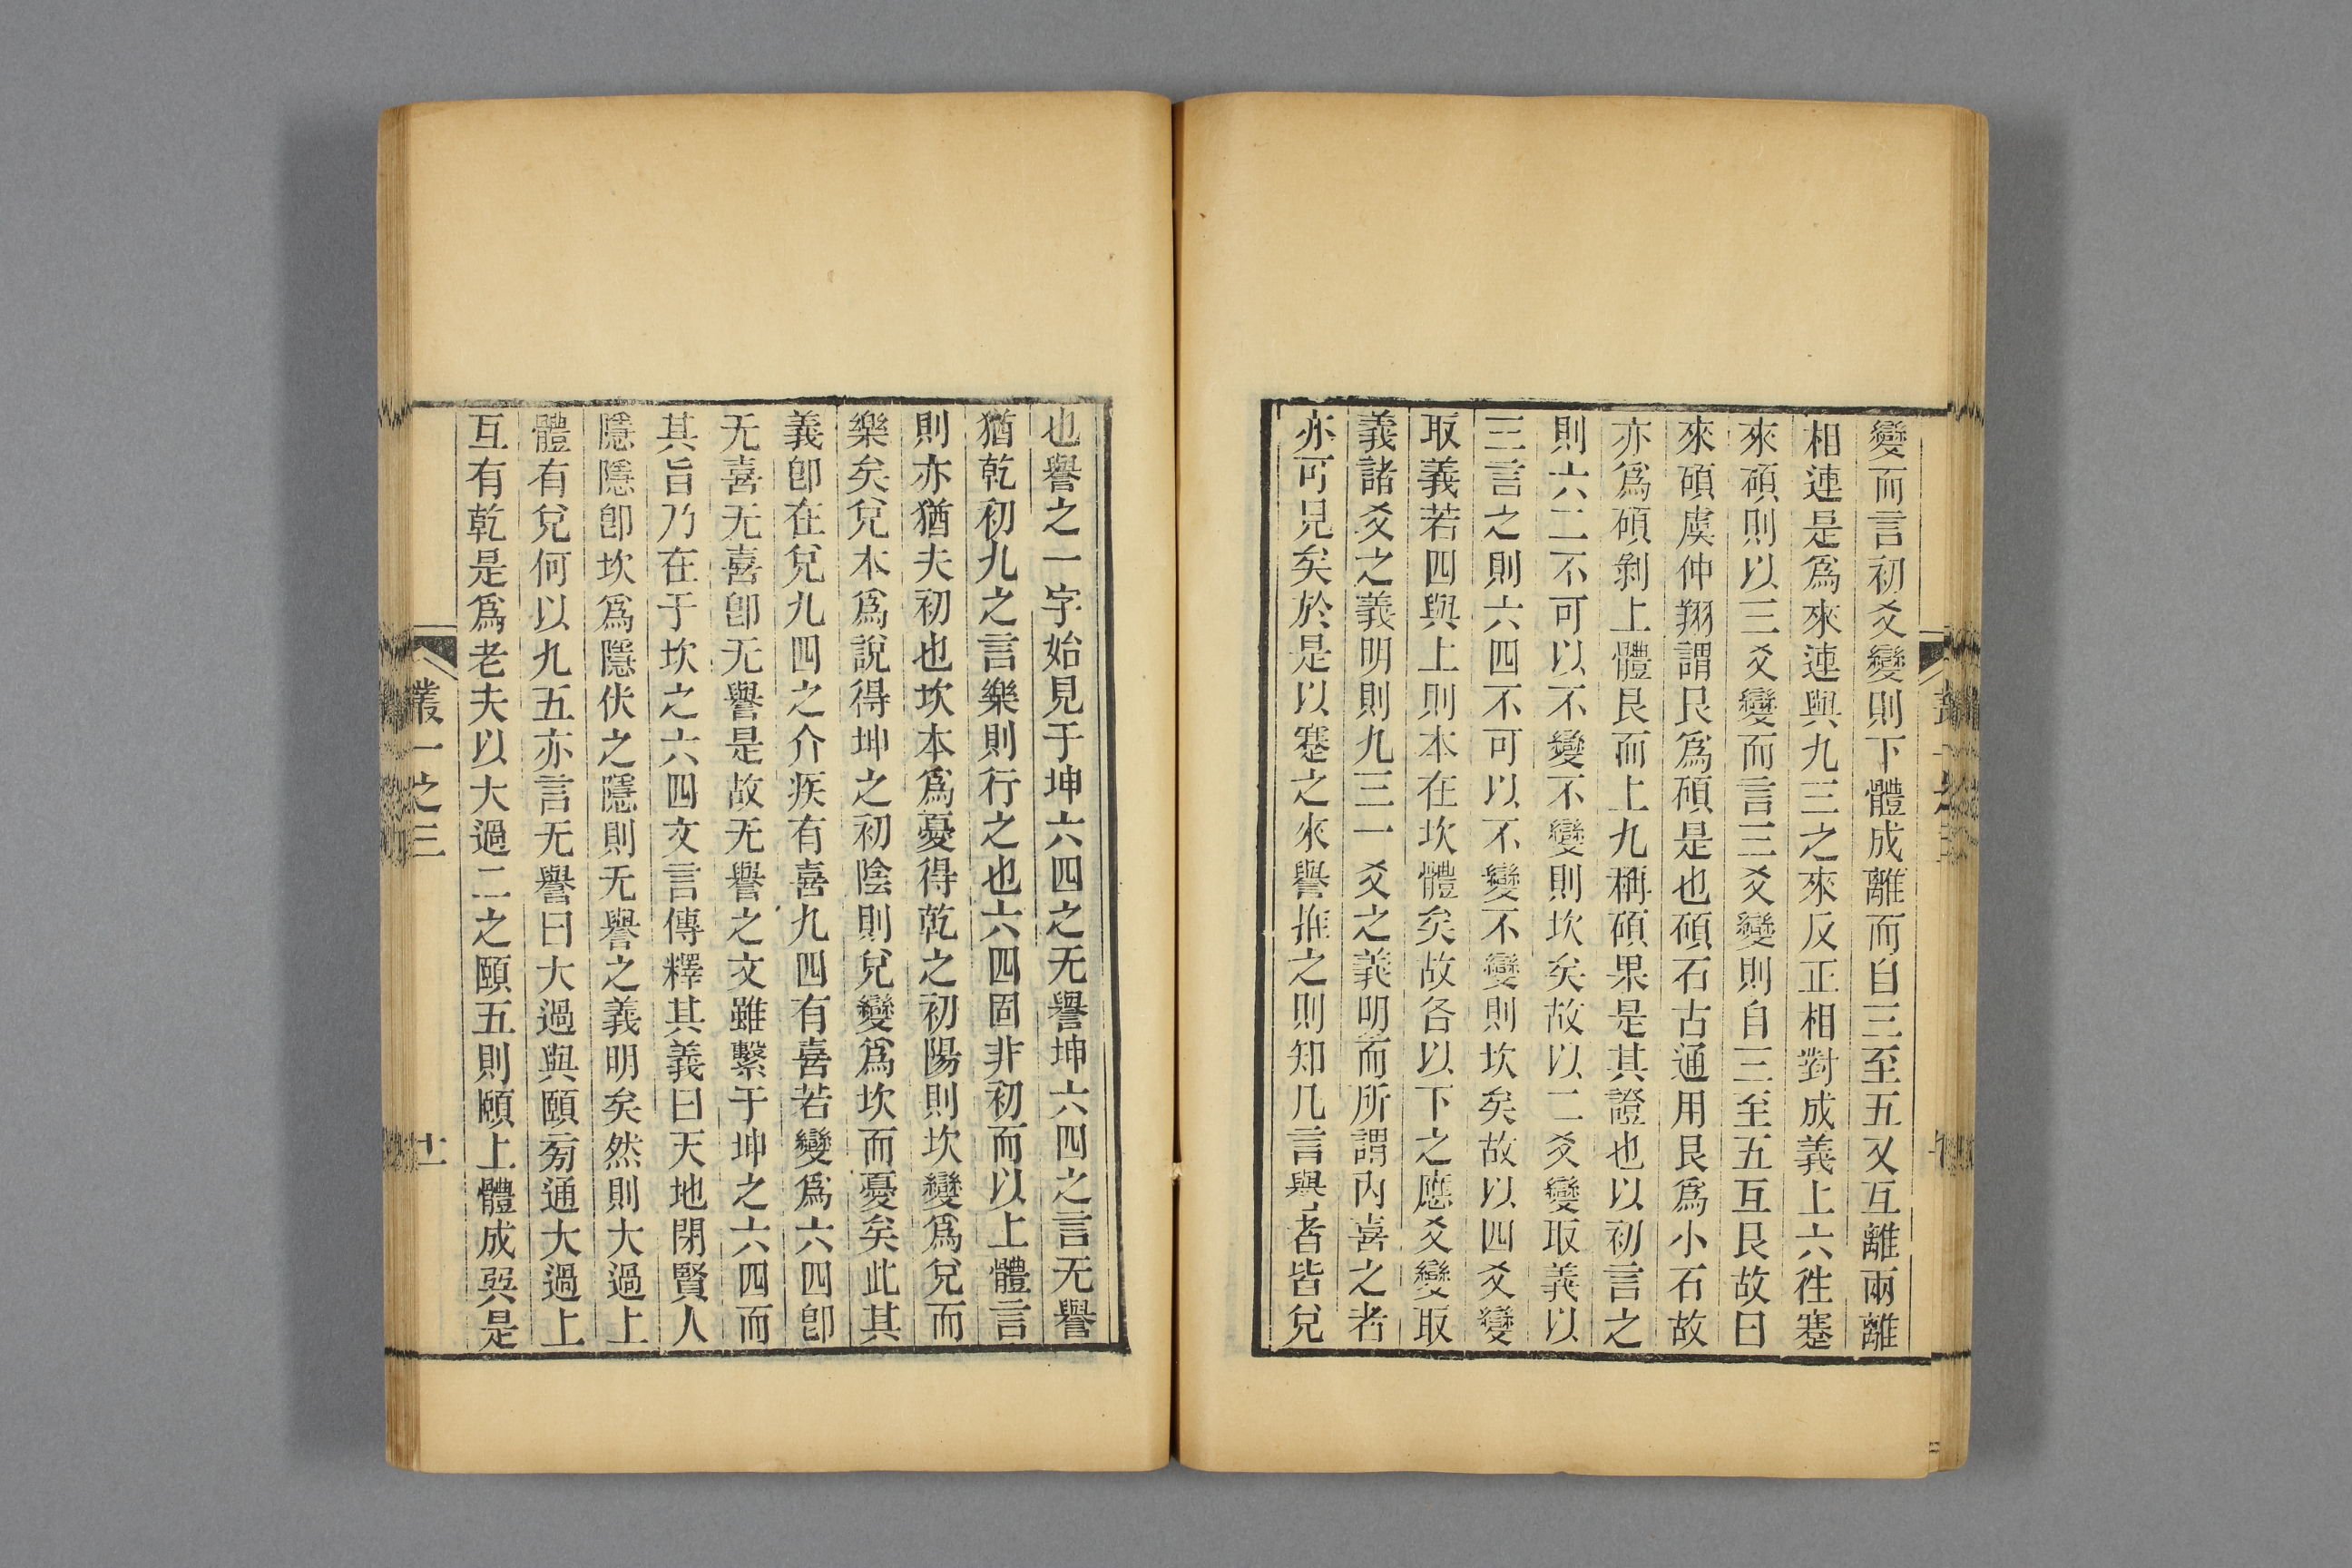 變而言初爻變則下體成離而自三至五又互離兩離
相連是爲來連與九三之來反正相對成義上六徃蹇
來碩則以三爻變而言三爻變則自三至五互艮故曰
來碩虞仲翔謂艮爲碩是也碩石古通用艮爲小石故
亦爲碩剝上體艮而上九稱碩果是其證也以初言之
則六二不可以不變不變則坎矣故以二爻變取義以
三言之則六四不可以不變不變則坎矣故以四爻變
取義若四與上則本在坎體矣故各以下之應爻變取
義諸爻之義明則九三一爻之義明而所謂內喜之者
亦可見矣於是以蹇之來譽推之則知凡言與者皆兌
也譽之一字始見于坤六四之无譽坤六四之言无譽
猶乾初九之言樂則行之也六四固非初而以上體言
則亦猶夫初也坎本爲憂得乾之初陽則坎變爲兌而
樂矣兌本爲說得坤之初陰則兌變爲坎而憂矣此其
義卽在兌九四之介疾有喜九四有喜若變爲六四卽
无喜无喜卽无譽是故无譽之文雖繫于坤之六四而
其旨乃在于坎之六四文言傳釋其義曰天地閉賢人
隱隱卽坎爲隱伏之隱則无譽之義明矣然則大過上
體有兌何以九五亦言无譽曰大過與頤旁通大過上
互有乾是爲老夫以大過二之頤五則頤上體成巽是
叢一之三
十一